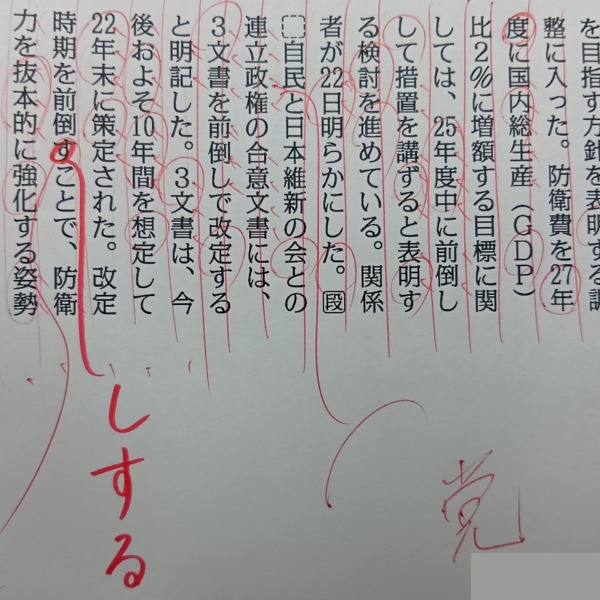 を目指す方針を表明する調
整に入った。防衛費を27年
度に国内総生産（GDP）
比2％に増額する目標に関
しては、25年度中に前倒し
して措置を講ずると表明す
る検討を進めている。関係
者が22日明らかにした。段
自民と日本維新の会との
連立政権の合意文書には、
3文書を前倒しで改定する
と明記した。3文書は、今
後およそ10年間を想定して
22年末に策定された。改定
時期を前倒すことで、防衛
力を抜本的に強化する姿勢
しする
党